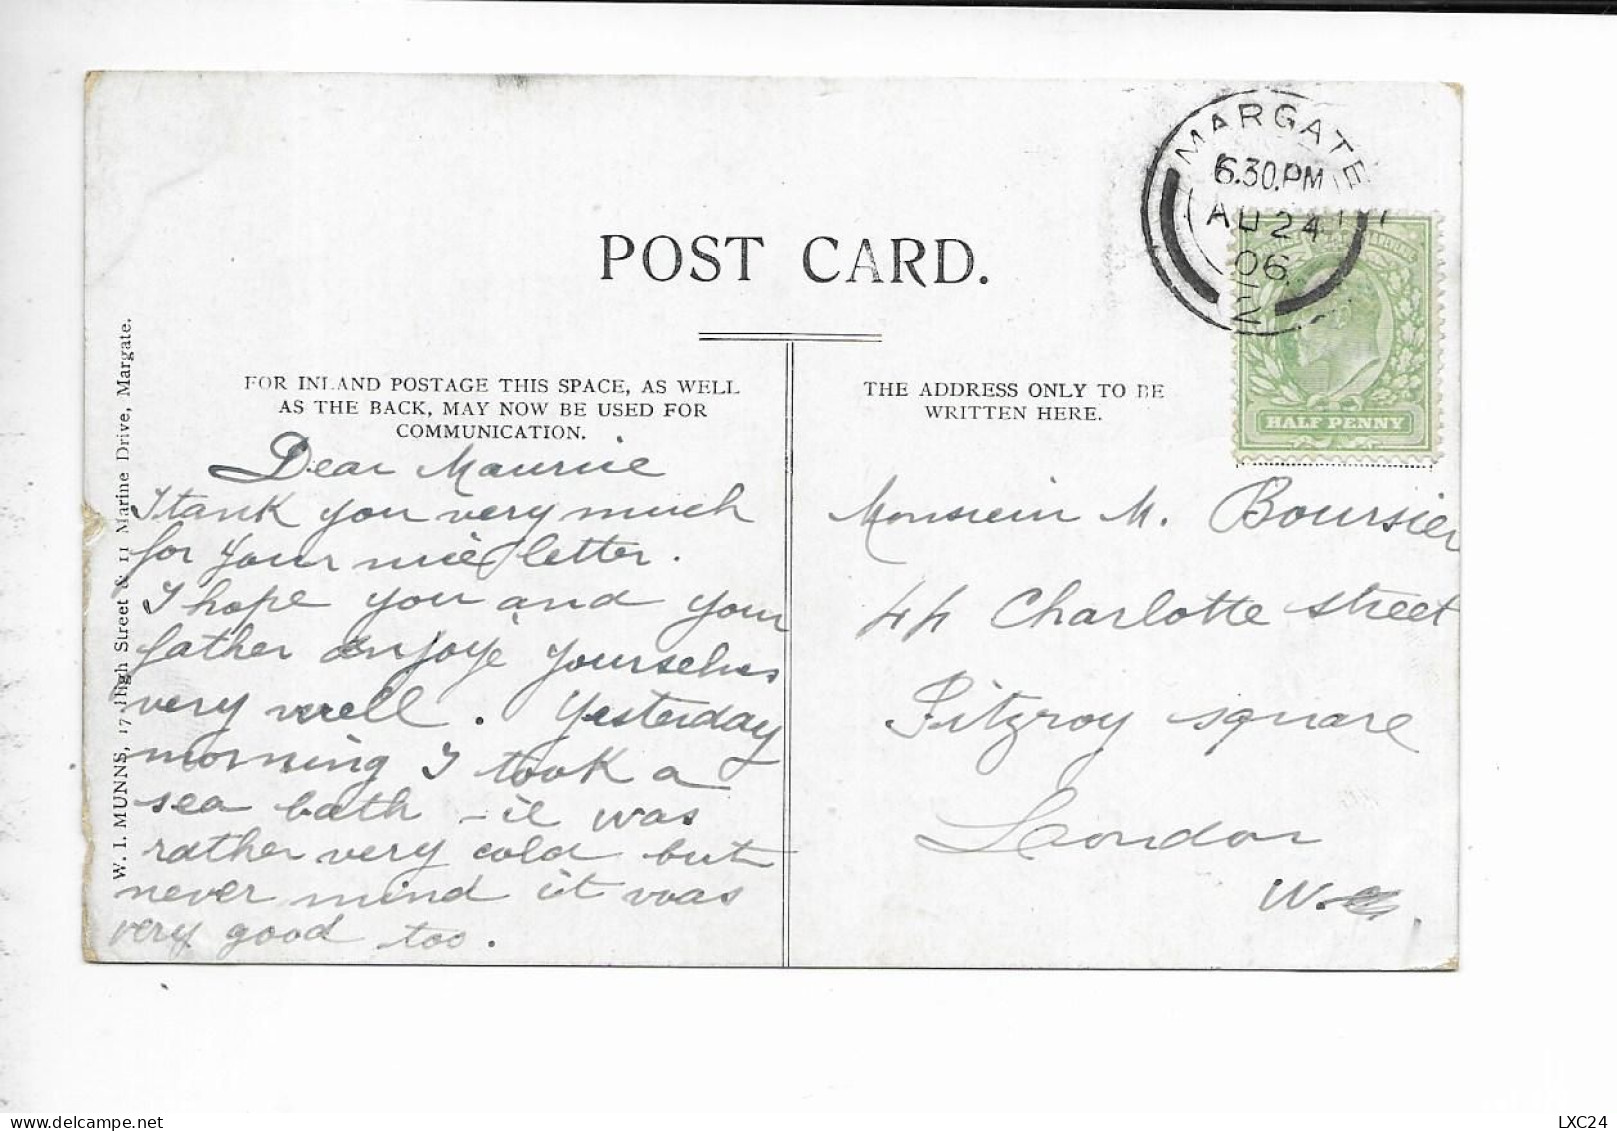 POST CARD.
FOR INLAND POSTAGE THIS SPACE, AS WELL
AS THE BACK, MAY NOW BE USED FOR
COMMUNICATION.
THE ADDRESS ONLY TO BE
WRITTEN HERE.
MARGATE
6.30.PM
AU 24
06
2
HALF PENNY
W. I. MUNNS, 17 High Street & 11 Marine Drive, Margate.
Dear Maurice
I tank you very much
for your nice letter.
I hope you and your
father enjoye yourselves
very well. Yesterday
morning I took a
sea bath - it was
rather very cold but
never mind it was
very good too.
Monsieur M. Boursier
44 Charlotte street
Fitzroy square
London
W.
LXC24